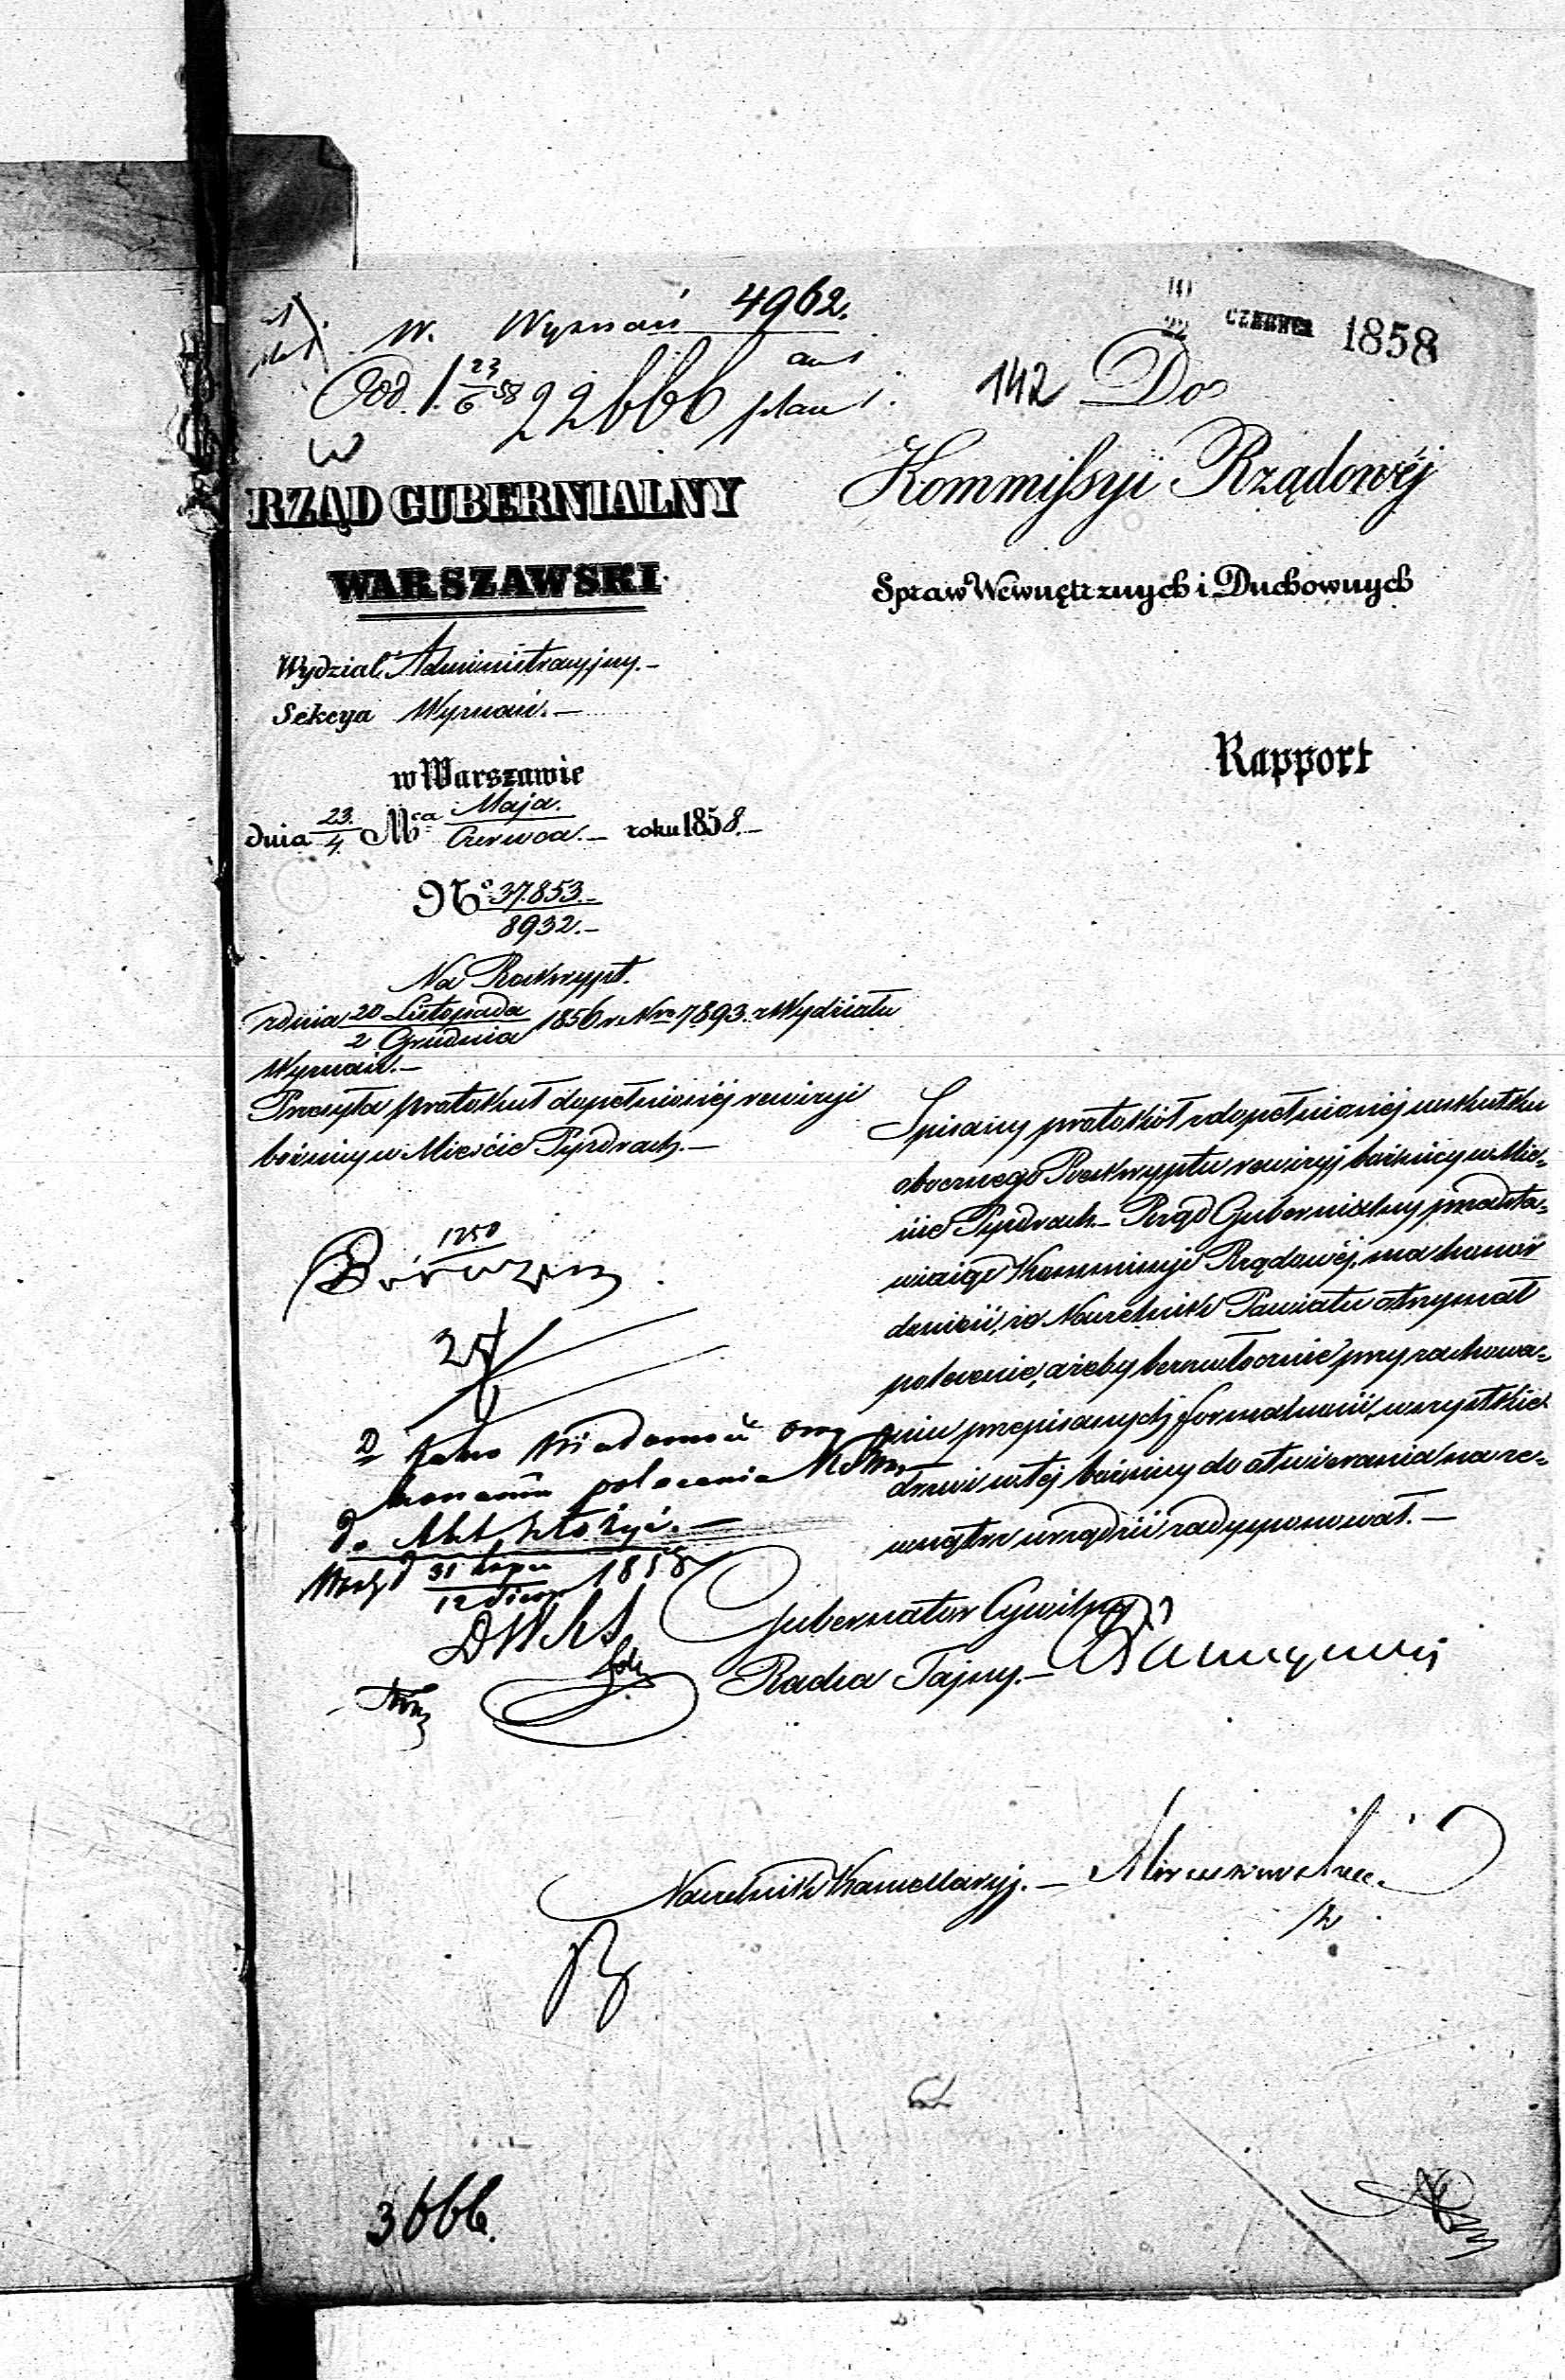 W. Wyznań 4962.
10
22 CZERWCA 1858
Od. 23/6 58 22666 plan
142 Do
Kommissyi Rządowéj
Spraw Wewnętrznych i Duchownych
RZĄD GUBERNIALNY
WARSZAWSKI
Wydział Administracyjny.-
Sekcya Wyznań.-
w Warszawie
dnia 23./4. Mca Maja./Czerwca.- roku 1858.-
No 37.853.-
8932.-
Rapport
Na Reskrypt.
z dnia 20 Listopada/2 Grudnia 1856 r. Nro 7893. z Wydziału
Wyznań.-
Przesyła protokuł dopełnionéj rewizyi
bóżnicy w Mieście Pyzdrach.-
Spisany protokół z dopełnionéj w skutku
obocznego Reskryptu rewizyj bóżnicy w Mie-
ście Pyzdrach - Rząd Gubernialny przedsta-
wiając Kommissyi Rządowéj, ma honor
donieść, że Naczelnik Powiatu otrzymał
polecenie, ażeby bezzwłocznie przy zachowa-
niu przepisanych formalności, wszystkie
drzwi w téj bóżnicy do otwierania na ze-
wnątrz urządzić zadysponował.-
1250
Jako wiadomość o
konaniu polecenia
do Akt złożyć.-
d 31 Lipca/12 Sierp 1858
Gubernator Cywilny
Radca Tajny.-
Naczelnik Kancellaryj.-
3666.